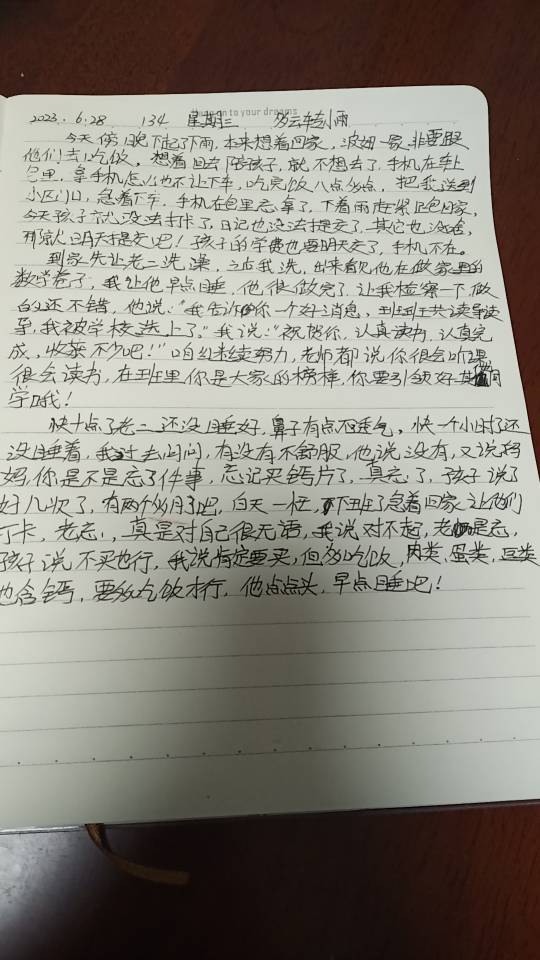 on to your dreams
2023.6.28 134 星期三 多云转小雨
今天傍晚下起了下雨,本来想着回家,波姐一家非要跟
他们去吃饭,想着回去陪孩子,就不想去了,手机在车上
包里,拿手机怎么也不让下车,吃完饭八点多点,把我送到
小区门口,急着下车,手机在包里忘拿了,下着雨赶紧跑回家,
今天孩子就没法打卡了,日记也没法提交了,其它也没啥,
那就明天提交吧!孩子的学费也要明天交了,手机不在。
到家先让老二洗澡,之后我洗,出来看见他在做家里的
数学卷子,我让他早点睡,他很快做完了,让我检察一下,做
的还不错,他说:"我告诉你一个好消息,到班班共读导读
导,我被学校选上了。"我说:"祝贺你,认真读书,认真完
成,收获不少吧!"咱继续努力,老师都说你很会听课,
很会读书,在班里你是大家的榜样,你要引领好其同
学哦!
快十点了老二还没睡好,鼻子有点不透气,快一个小时了还
没睡着,我过去问问,有没有不舒服,他说没有,又说妈
妈,你是不是忘了件事,忘记买钙片了,真忘了,孩子说了
好几次了,有两个多月了吧,白天一忙,下班了急着回家让他们
打卡,老忘,真是对自己很无语,我说对不起,老是忘,
孩子说不买也行,我说肯定要买,但多吃饭,肉类、蛋类、豆类
也含钙,要多吃饭才行,他点点头,早点睡吧!